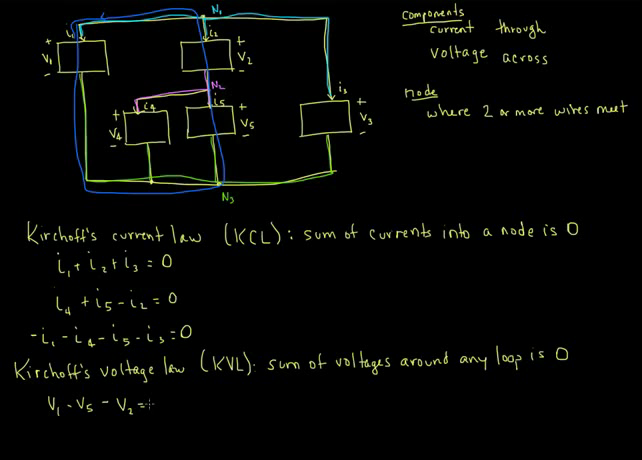 N₁
i₁
i₂
+
V₁
-
+
V₂
-
N₂
i₄
i₅
i₃
+
V₄
-
+
V₅
-
+
V₃
-
N₃
Components
current through
voltage across
node
where 2 or more wires meet
Kirchoff's current law (KCL): sum of currents into a node is 0
i₁ + i₂ + i₃ = 0
i₄ + i₅ - i₂ = 0
-i₁ - i₄ - i₅ - i₃ = 0
Kirchoff's voltage law (KVL): sum of voltages around any loop is 0
V₁ - V₅ - V₂ =